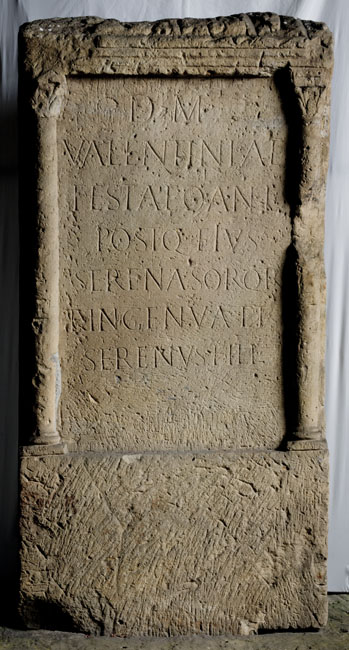 D M
VALENTINI AT
TESTATQ ANI
POSIQ EIVS
SERENA SOROR
INGENVA ET
SERENVS FILI